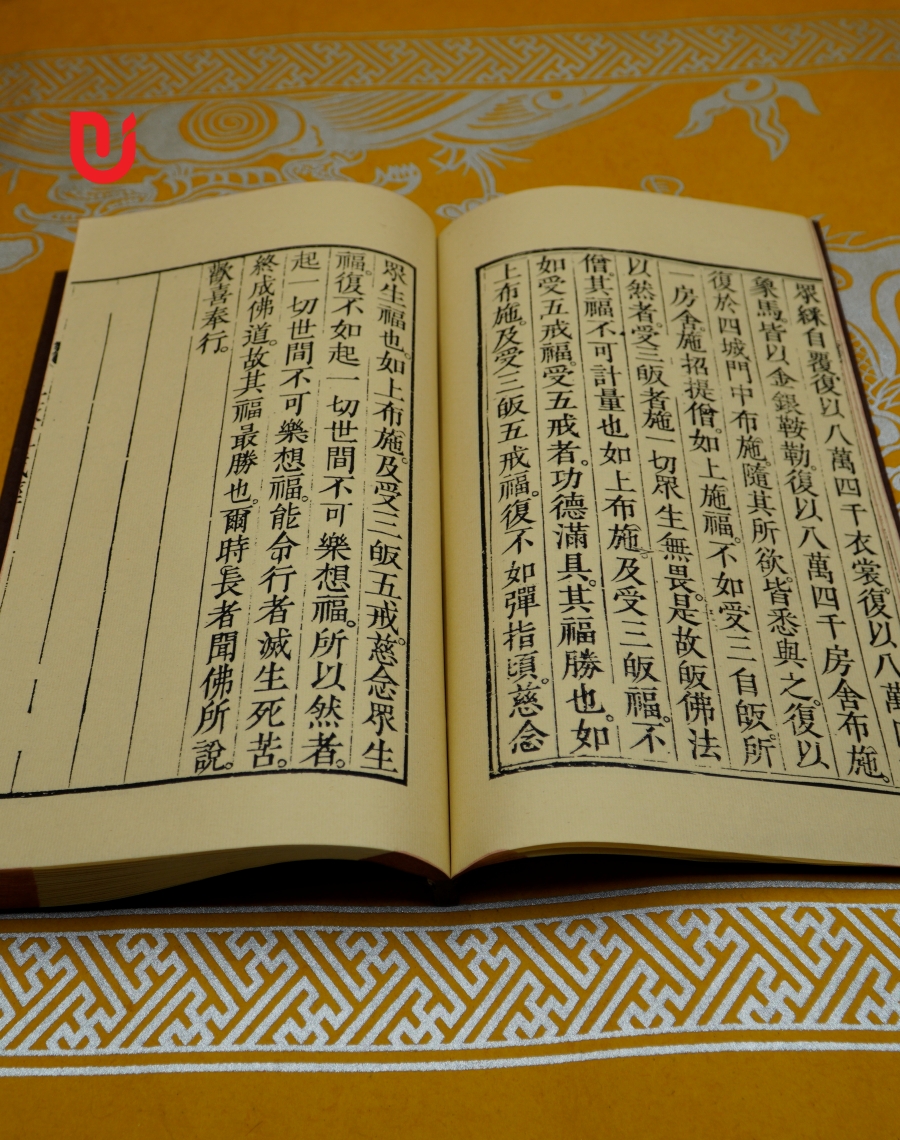 眾綵自覆復以八萬四千衣裳。復以八萬
象馬皆以金銀鞍勒。復以八萬四千房舍布施。
復於四城門中布施。隨其所欲。皆悉與之。復以
一房舍。施招提僧。如上施福。不如受三自皈所
以然者。受三皈者施一切眾生無畏。是故皈佛法
僧。其福不可計量也如上布施。及受三皈福。不
如受五戒福。受五戒者。功德滿具。其福勝也。如
上布施。及受三皈五戒福。復不如彈指頃。慈念
眾生福也。如上布施。及受三皈五戒。慈念眾生
福。復不如起一切世間不可樂想福。所以然者。
起一切世間不可樂想福。能令行者滅生死苦。
終成佛道。故其福最勝也。爾時長者聞佛所說。
歡喜奉行。